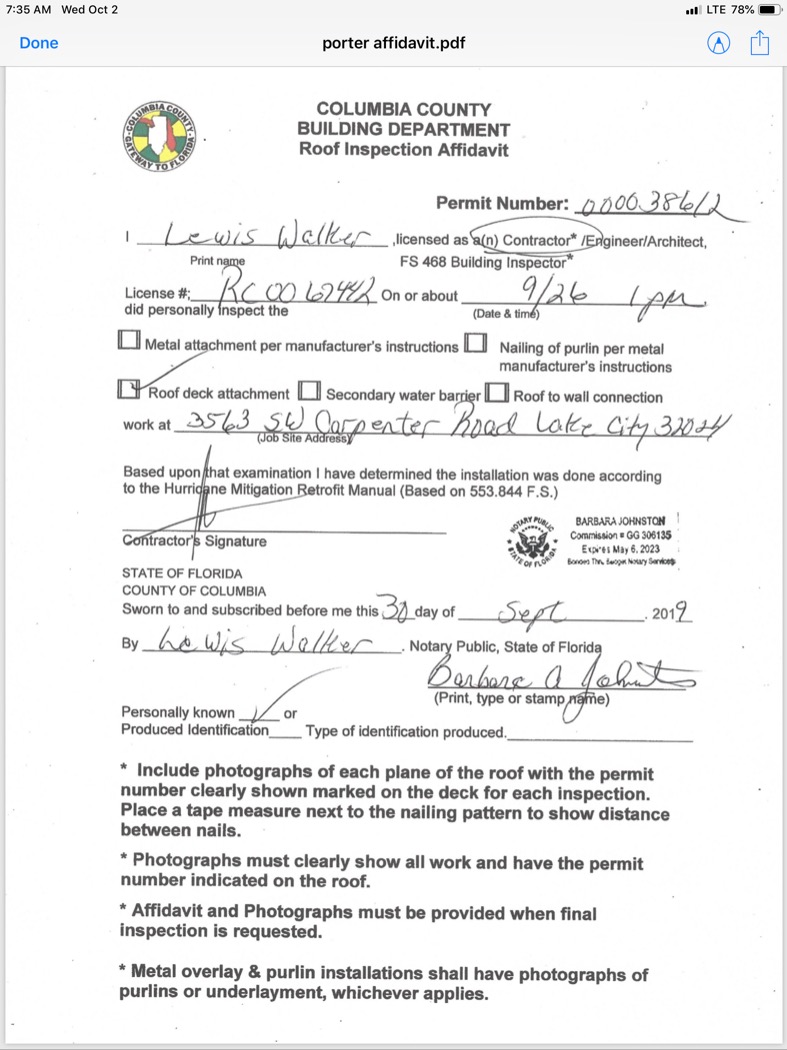 7:35 AM Wed Oct 2
LTE 78%
Done
porter affidavit.pdf
COLUMBIA COUNTY
GATEWAY TO FLORIDA
COLUMBIA COUNTY
BUILDING DEPARTMENT
Roof Inspection Affidavit
Permit Number: 000038612
I Lewis Walker ,licensed as a(n) Contractor* /Engineer/Architect,
Print name FS 468 Building Inspector*
License #: RC0067442 On or about 9/26 1pm.
did personally inspect the (Date & time)
Metal attachment per manufacturer's instructions Nailing of purlin per metal
manufacturer's instructions
Roof deck attachment Secondary water barrier Roof to wall connection
work at 3563 SW Carpenter Road Lake City 32024
(Job Site Address)
Based upon that examination I have determined the installation was done according
to the Hurricane Mitigation Retrofit Manual (Based on 553.844 F.S.)
Contractor's Signature
NOTARY PUBLIC
STATE OF FLORIDA
BARBARA JOHNSTON
Commission # GG 306135
Expires May 6, 2023
Bonded Thru Budget Notary Services
STATE OF FLORIDA
COUNTY OF COLUMBIA
Sworn to and subscribed before me this 30 day of Sept . 2019
By Lewis Walker . Notary Public, State of Florida
Barbara A Johnston
(Print, type or stamp name)
Personally known or
Produced Identification Type of identification produced.
* Include photographs of each plane of the roof with the permit
number clearly shown marked on the deck for each inspection.
Place a tape measure next to the nailing pattern to show distance
between nails.
* Photographs must clearly show all work and have the permit
number indicated on the roof.
* Affidavit and Photographs must be provided when final
inspection is requested.
* Metal overlay & purlin installations shall have photographs of
purlins or underlayment, whichever applies.